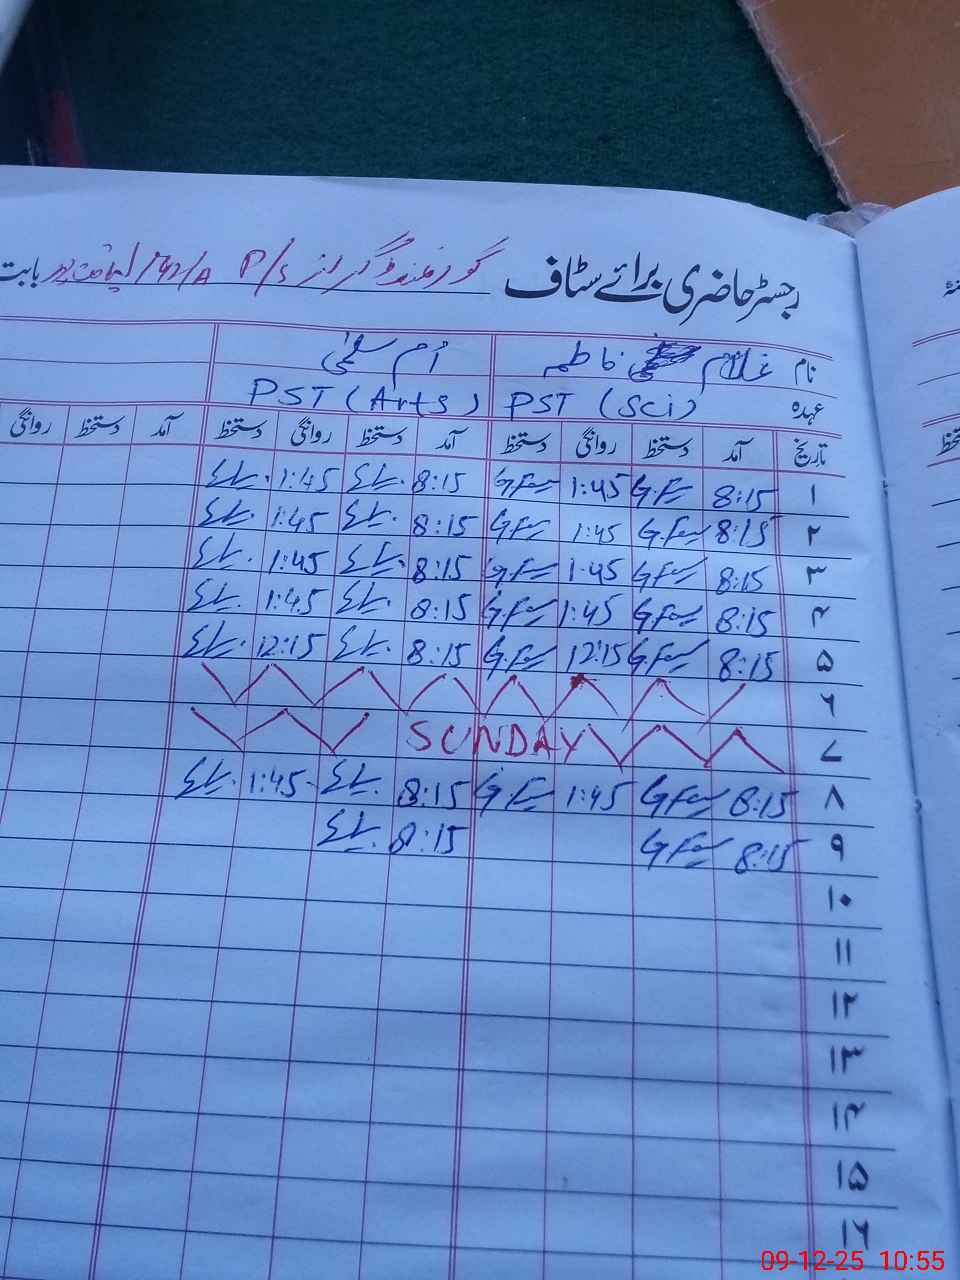 رجسٹر حاضری برائے سٹاف گورنمنٹ گرلز P/S 42/A/ بابت
نام غلام فاطمہ اُم سلمیٰ
عہدہ PST (Sci) PST (Arts)
تاریخ آمد دستخط روانگی دستخط آمد دستخط روانگی دستخط آمد دستخط روانگی
۱ 8:15 G.F 1:45 8:15 1:45
۲ 8:15 1:45 8:15 1:45
۳ 8:15 1:45 8:15 1:45
۴ 8:15 1:45 8:15 1:45
۵ 8:15 12:15 8:15 12:15
۶
۷ SUNDAY
۸ 8:15 1:45 8:15 1:45
۹ 8:15 8:15
۱۰
۱۱
۱۲
۱۳
۱۴
۱۵
۱۶
09-12-25 10:55